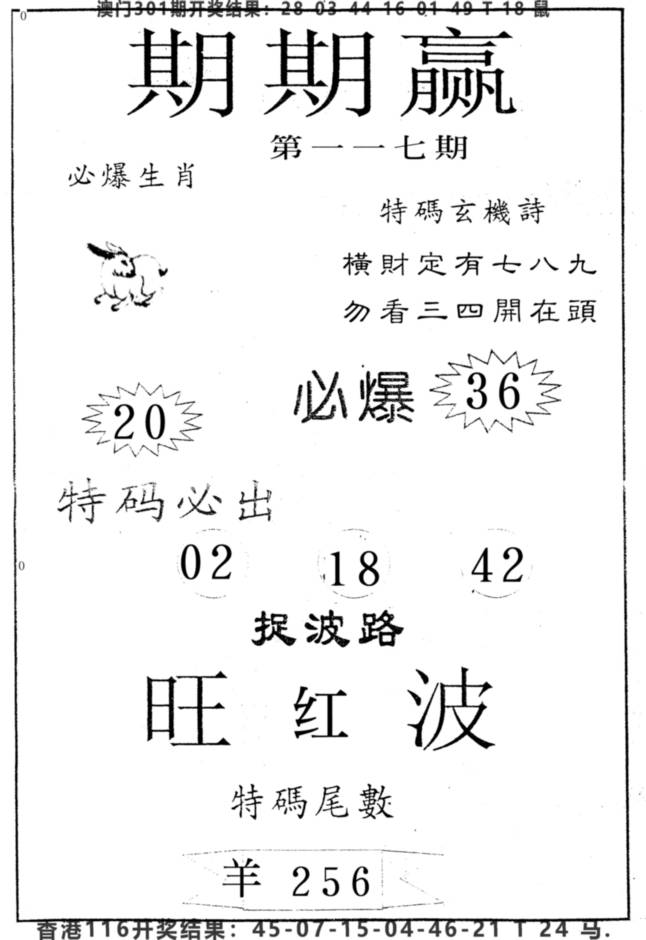 澳门301期开奖结果：28 03 44 16 01 49 T 18 鼠
期期赢
第一一七期
必爆生肖
特碼玄機詩
橫財定有七八九
勿看三四開在頭
20
必爆 36
特码必出
02 18 42
捉波路
旺红波
特碼尾數
羊 256
香港116开奖结果：45-07-15-04-46-21 T 24 马.